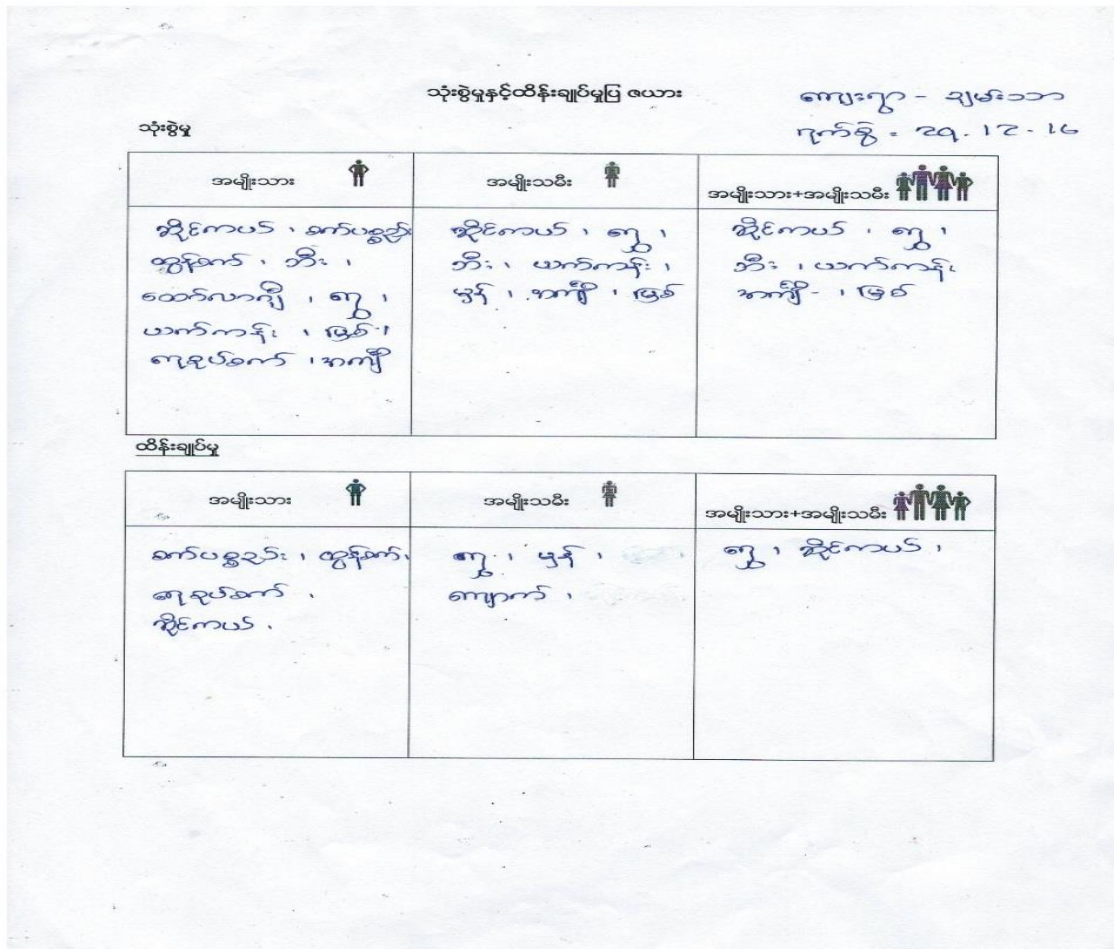 သုံးစွဲမှုနှင့်ထိန်းချုပ်မှုပြ ဇယား
ကျေးရွာ - ချမ်းသာ
ရက်စွဲ = 29.12.16
သုံးစွဲမှု
အမျိုးသား
အမျိုးသမီး
အမျိုးသား+အမျိုးသမီး
ဆိုင်ကယ်၊ စက်ပစ္စည်း
ထွန်စက်၊ ဘီး၊
ထော်လာဂျီ၊ ရွှေ၊
ယက်ကန်း၊ မြစ်၊
ရေစုပ်စက်၊ အင်္ကျီ
ဆိုင်ကယ်၊ ရွှေ၊
ဘီး၊ ယက်ကန်း၊
မှန်၊ အင်္ကျီ၊ မြစ်
ဆိုင်ကယ်၊ ရွှေ၊
ဘီး၊ ယက်ကန်း
အင်္ကျီ-၊ မြစ်
ထိန်းချုပ်မှု
အမျိုးသား
အမျိုးသမီး
အမျိုးသား+အမျိုးသမီး
စက်ပစ္စည်း၊ ထွန်စက်၊
ရေစုပ်စက်၊
ဆိုင်ကယ်၊
ရွှေ၊ မှန်၊
ကျောက်၊
ရွှေ၊ ဆိုင်ကယ်၊